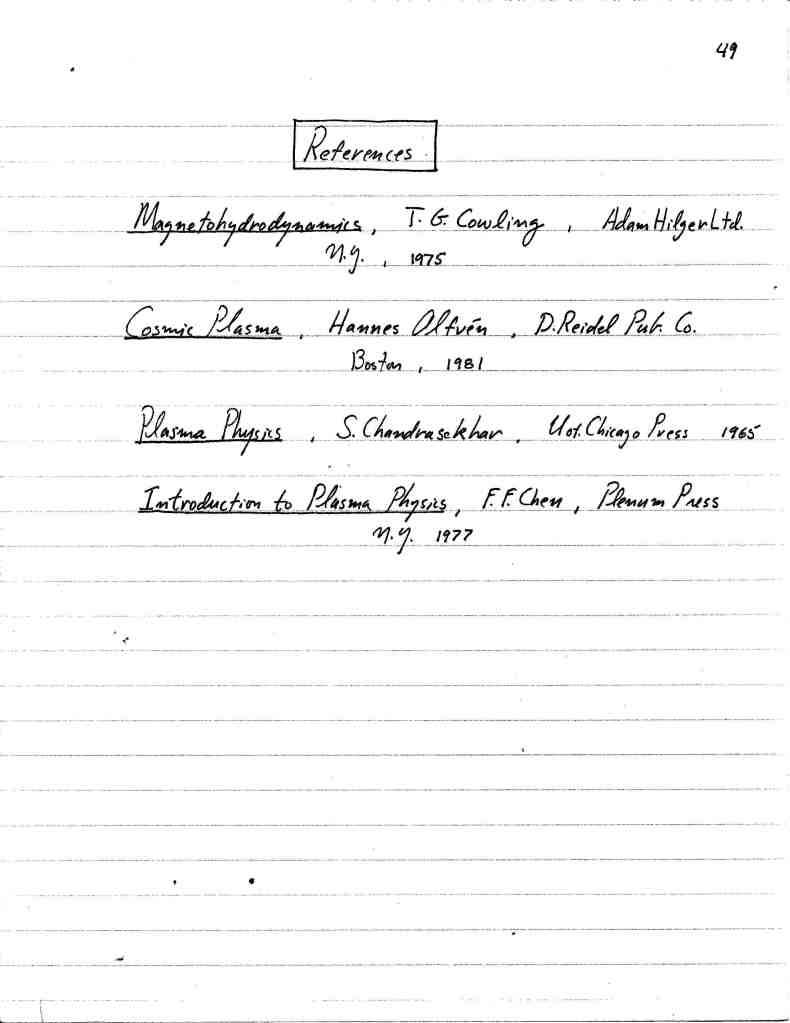 49
References
Magnetohydrodynamics, T. G. Cowling, Adam Hilger Ltd.
N.Y., 1975
Cosmic Plasma, Hannes Alfvén, D. Reidel Pub. Co.
Boston, 1981
Plasma Physics, S. Chandrasekhar, U of. Chicago Press 1965
Introduction to Plasma Physics, F. F. Chen, Plenum Press
N.Y. 1977